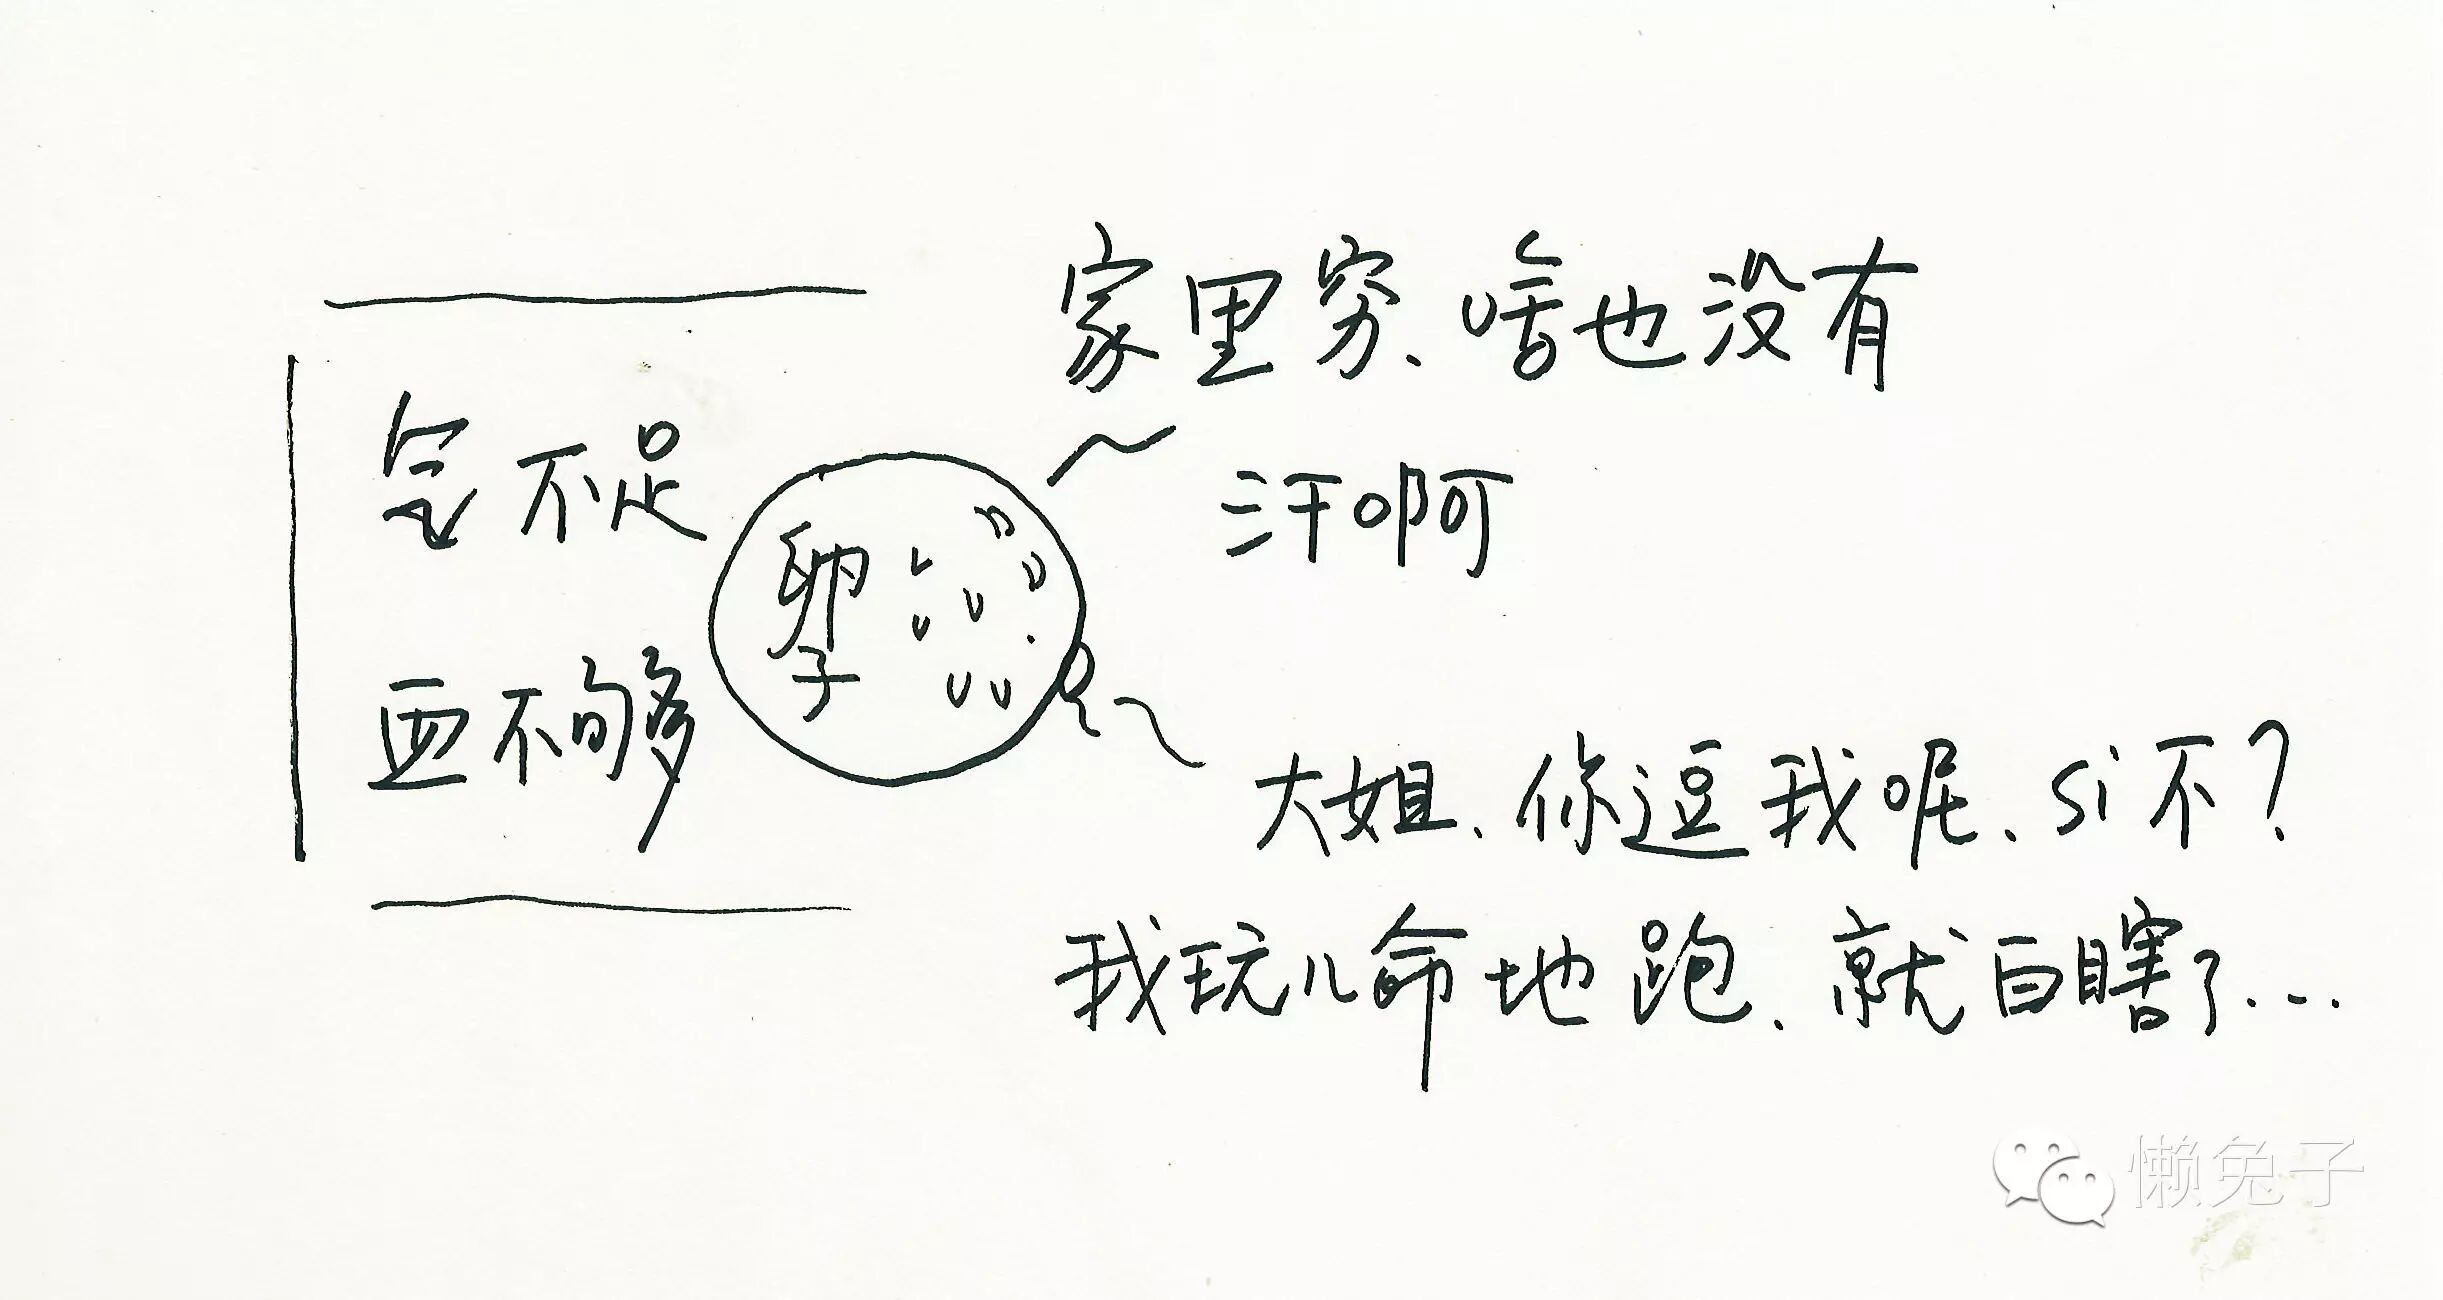 家里穷、啥也没有
气不足
汗啊
卵子
血不够
大姐、你逗我呢、si不？
我玩儿命地跑、就白瞎了...
懒兔子